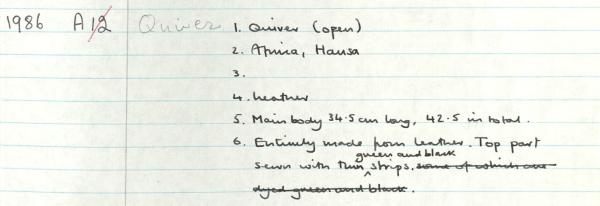 1986 A12 Quiver 1. Quiver (open)
2. Africa, Hausa
3.
4. Leather
5. Main body 34.5cm long, 42.5 in total.
6. Entirely made from leather. Top part
green and black
sewn with thin strips. some of which are
dyed green and black.